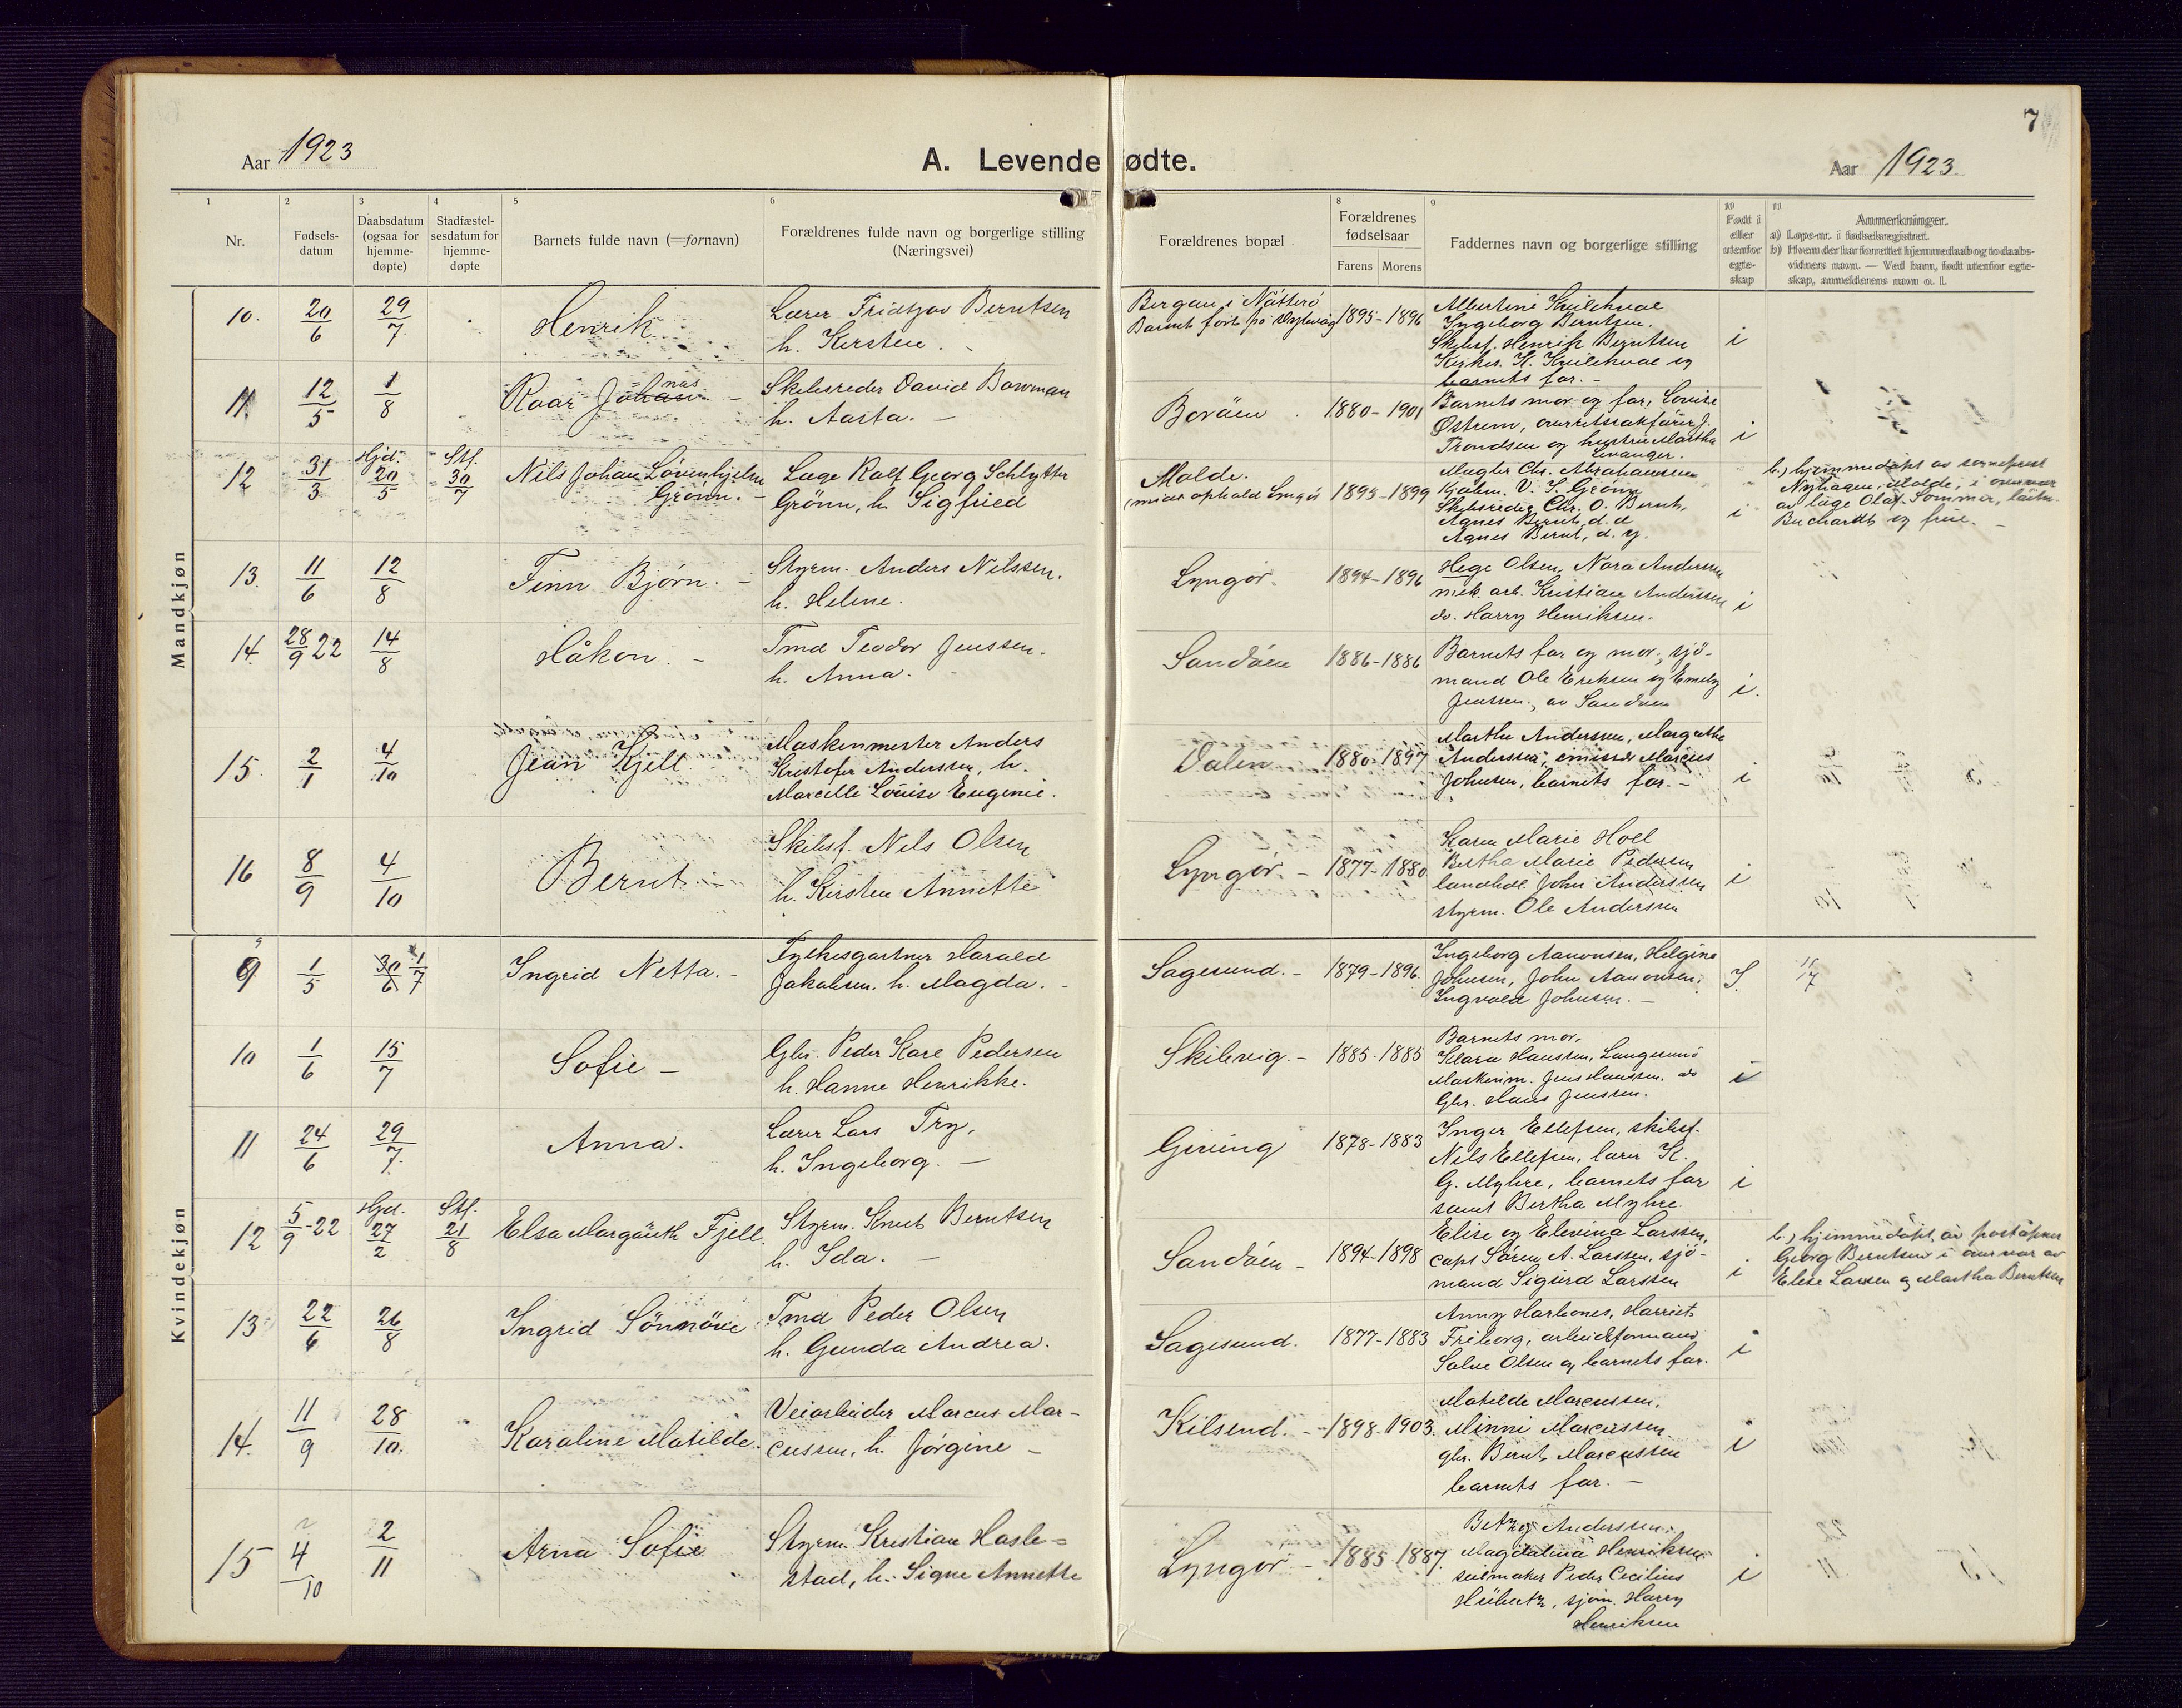 7
Aar 1923
A. Levendefødte.
Aar 1923
1 Nr.
2 Fødselsdatum
3 Daabsdatum (ogsaa for hjemmedøpte)
4 Stadfæstelsesdatum for hjemmedøpte
5 Barnets fulde navn (=fornavn)
6 Forældrenes fulde navn og borgerlige stilling (Næringsvei)
Forældrenes bopæl
8 Forældrenes fødselsaar
Farens Morens
9 Faddernes navn og borgerlige stilling
10 Født i eller utenfor egteskap
11 Anmerkninger.
a) Løpe-nr. i fødselsregistret.
b) Hvem der har forrettet hjemmedaab og to daabsvidners navn. — Ved barn, født utenfor egteskap, anmelderens navn o. l.
Mandkjøn
10. 20/6 29/7 Henrik
Lærer Fridtjov Berntsen
h. Kirsten
Bergan i Nötterö
1895-1896
Ingeborg Berntsen.
Skibsf. Henrik Berntsen
barnets far. -
i
11. 12/5 1/8 Roar Johan nas -
Skibsreder David Bowman
h. Aasta. -
Boröen 1880-1901
Barnets mor og far, Louise
Østrem, overretssakförer J.
Trondsen og hustru Martha
Levanger.
i
12 31/3 Hjd. 20/5 Stf. 30/7
Nils Johan Lövenhjelm
Grönn. -
Læge Ralf Georg Schlytter
Grönn, h. Sigfried
Molde.
1895-1899
Megler Chr. Abrahamsen
V. S. Grönn
Skibsreder Chr. O. Bernt,
Agnes Bernt, d. e
Agnes Bernt, d. y.
i
b.) hjemmedöpt av sogneprest
Nyhagen, Molde, i overvær
av læge Olaf Sommer,
Buchardt og frue. -
13. 11/6 12/8 Finn Bjørn. -
Styrm. Anders Nilssen.
h. Helene.
Lyngör. 1894-1896
Hege Olsen, Nora Anderssen
mek. arb. Kristian Anderssen
do. Harry Henriksen.
i
14. 28/9 22 14/8 Håkon. -
Tmd Teodor Jenssen.
h. Anna.
Sandöen 1886-1886
Barnets far og mor, sjö-
mand Ole Eriksen og Emely
Jenssen, av Sandöen
i.
15. 2/1 4/10 Jean Kjell.
Maskinmester Anders
Kristofer Anderssen, h.
Marcelle Louise Eugenie.
Dalen 1880-1897
Marthe Anderssen, Margrethe
Anderssen, emissær Marcus
Johnsen, barnets far. -
i
16 8/9 4/10 Bernt. -
Skibsf. Nils Olsen
h. Kirsten Annette
Lyngör. - 1877-1880
Karen Marie Hoel
Bertha Marie Pedersen
landhdl. John Anderssen
styrm. Ole Anderssen
i
Kvindekjøn
9 1/5 30/6 1/7 Ingrid Netta. -
Fylkesgartner Harald
Jakobsen. h. Magda. -
Sagesund. - 1879-1896.
Ingeborg Aanonsen, Helgine
Johnsen, John Aanonsen,
Ingvald Johnsen. -
I.
10 1/6 15/7 Sofie -
Gbr. Peder Kare Pedersen
h. Hanne Henrikke.
Skibvig. - 1885-1885
Barnets mor,
Klara Hanssen, Langesund
Maskinm. Jens Hanssen, do
Gbr. Hans Jenssen.
i
11 24/6 29/7. Anna.
Lærer Lars Try,
h. Ingeborg. -
Giving 1878-1883
Inger Ellefsen, skibsf.
Nils Ellefsen, lærer K.
G. Myhre, barnets far
samt Bertha Myhre.
i
12 5/9-22 Hjd. 27/2 Stf. 21/8
Elsa Margareth Fjell.
Styrm. Knut Berntsen
h. Ida. -
Sandöen - 1894-1898
Elise og Elevina Larssen,
capt Sören A. Larssen, sjö-
mand Sigurd Larssen
i
b.) hjemmedöpt av poståpner
Georg Berntsen i overvær av
Elise Larsen og Martha Berntsen
13. 22/6 26/8 Ingrid Sönnöve
Tmd Peder Olsen
h. Gunda Andrea.
Sagesund. 1877-1883
Anny Harbones, Harriet
Friborg, arbeidsformand
Salve Olsen og barnets far.
i
14. 11/9 28/10. Karaline Matilde.
Veiarbeider Marcus Mar-
cussen, h. Jörgine -
Kilsund. - 1898-1903.
Matilde Marcussen,
Minni Marcussen
gbr. Bernt Marcussen
barnets far. -
i
15 4/10 2/11 Arna Sofie
Styrm. Kristian Hasle-
stad, h. Signe Annette
Lyngör - 1885-1887.
Betzy Anderssen,
Magdalena Henriksen
seilmaker Peder Cecilius
Hübertz, sjöm. Harry
Henriksen
i